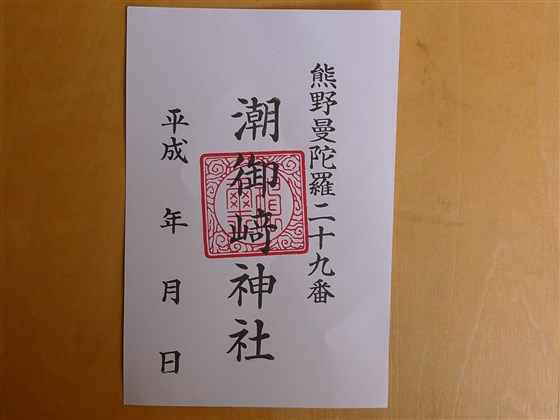 熊野曼陀羅二十九番
潮御﨑神社
平成 年 月 日